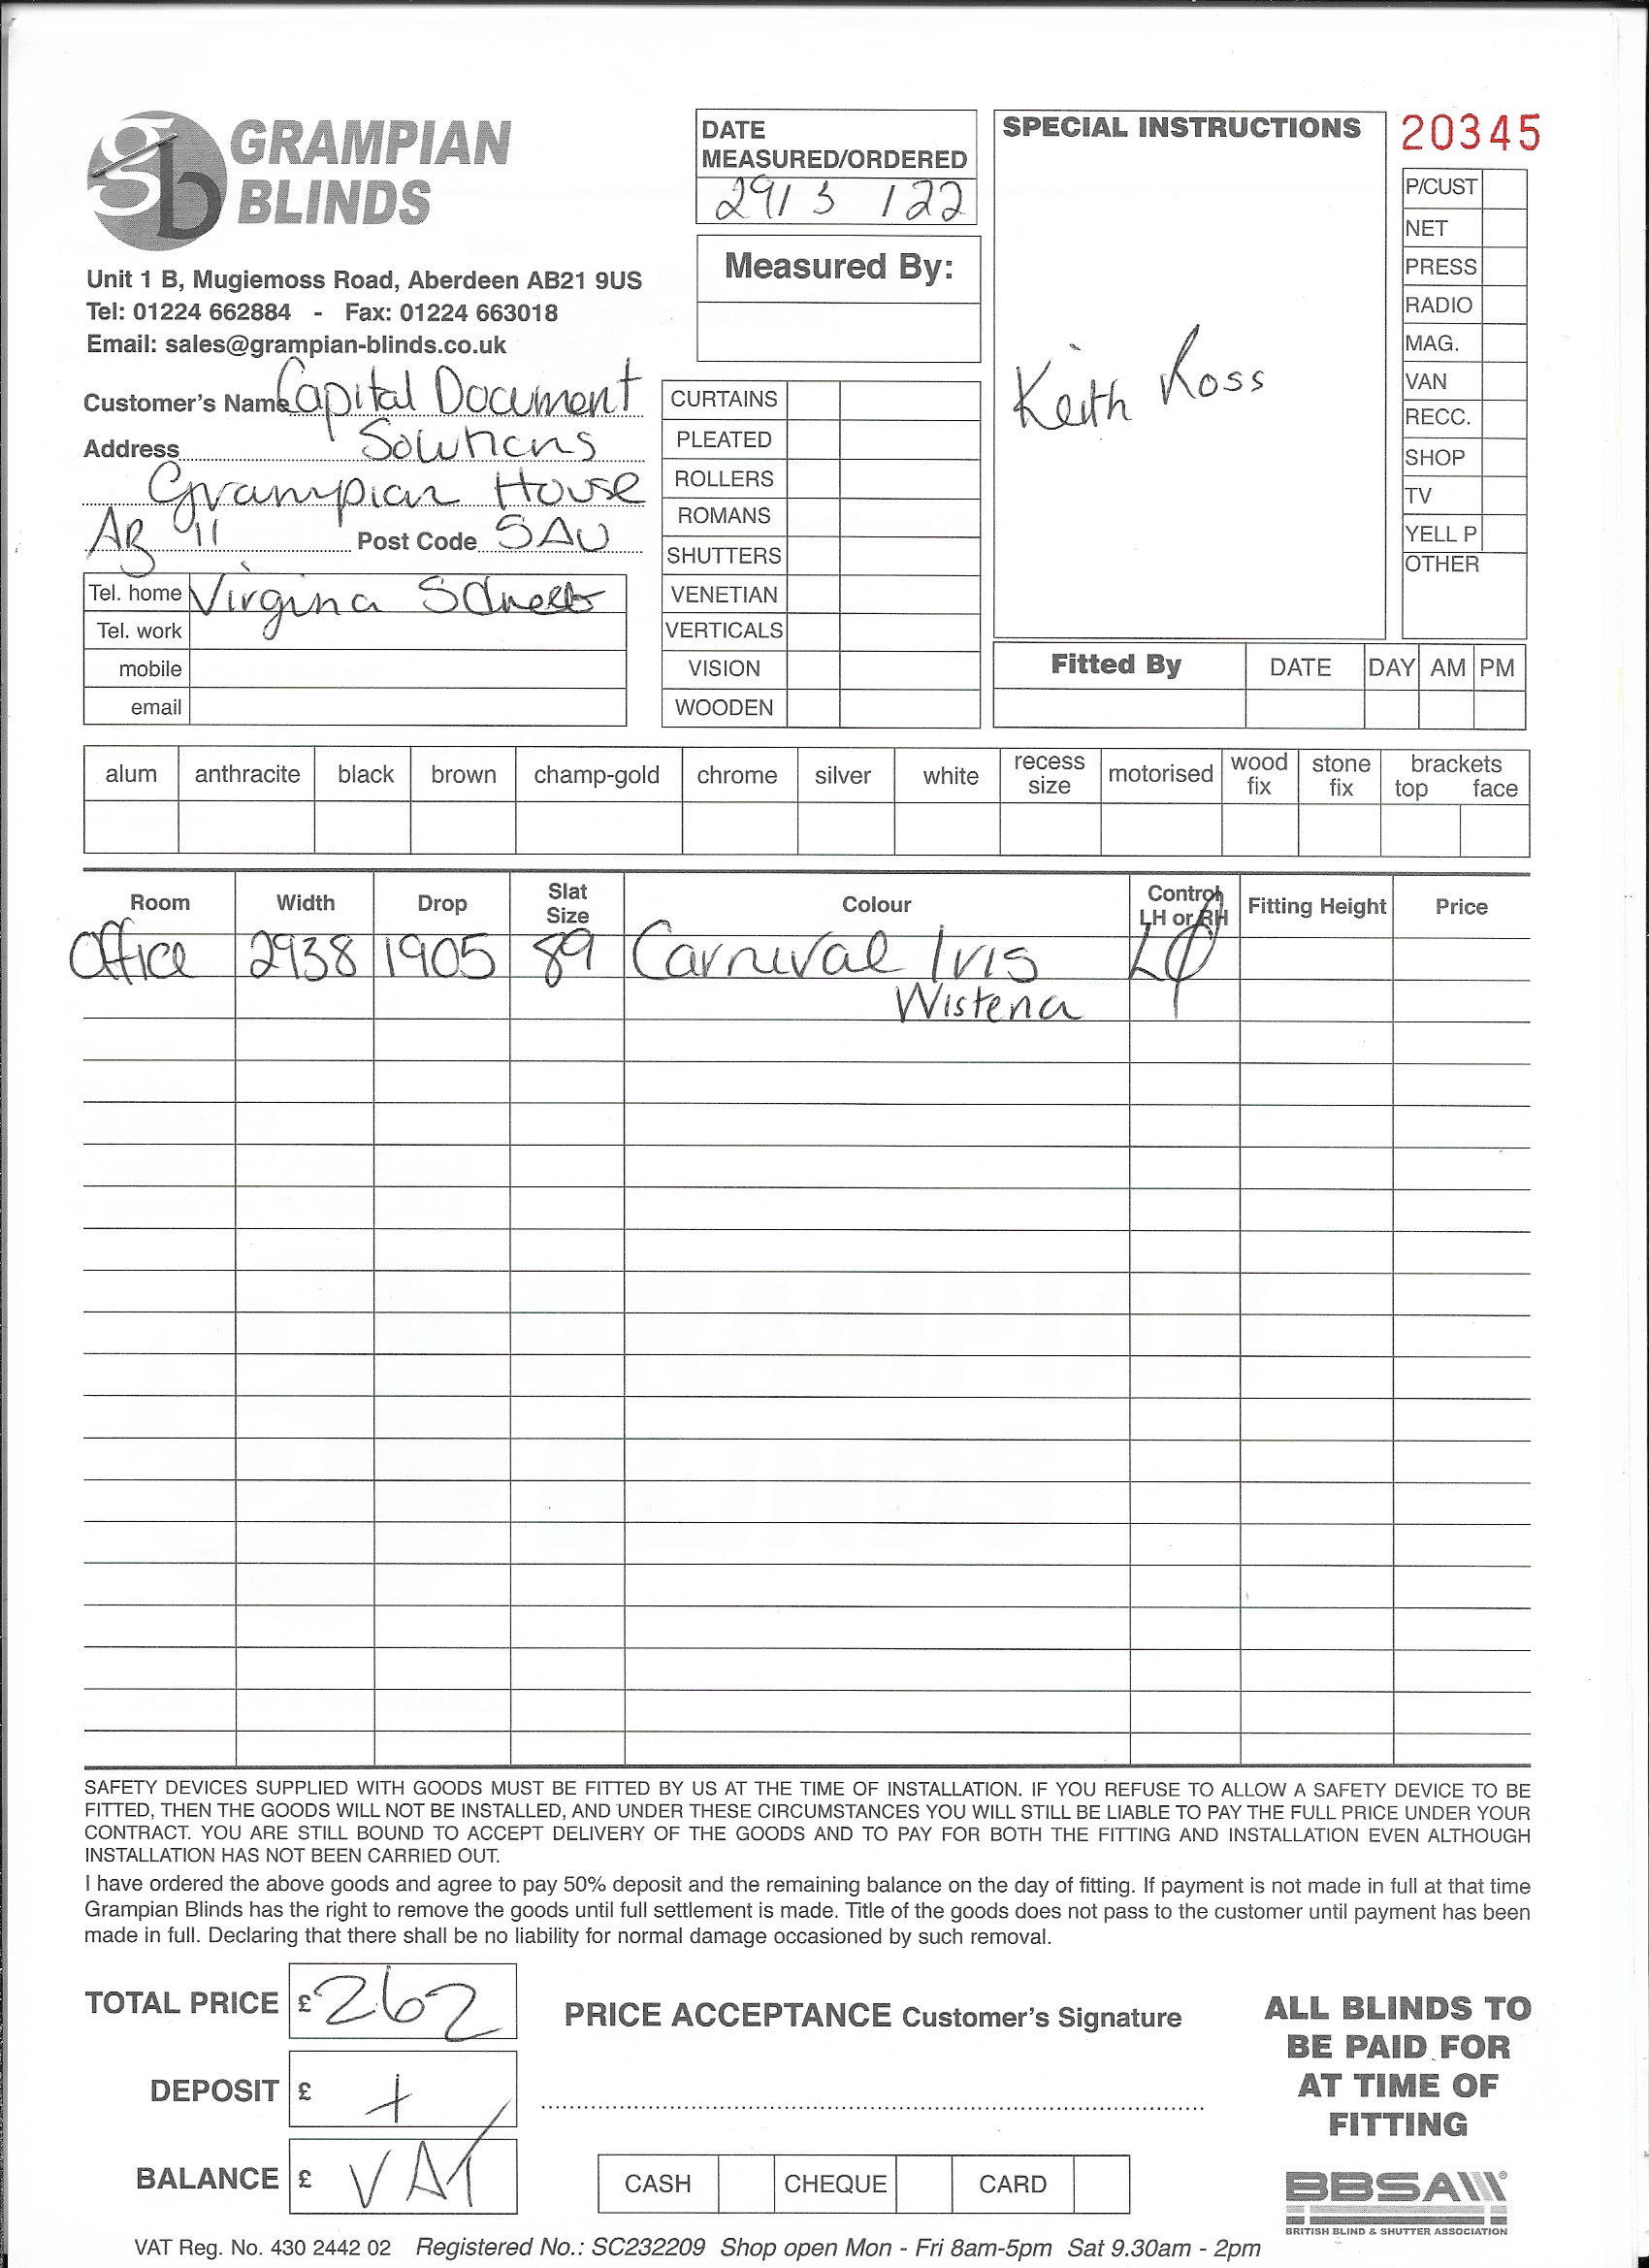 GRAMPIAN
BLINDS
gb
Unit 1 B, Mugiemoss Road, Aberdeen AB21 9US
Tel: 01224 662884 - Fax: 01224 663018
Email: sales@grampian-blinds.co.uk
DATE
MEASURED/ORDERED
29/3/22
Measured By:
SPECIAL INSTRUCTIONS
Keith Ross
20345
P/CUST
NET
PRESS
RADIO
MAG.
VAN
RECC.
SHOP
TV
YELL P
OTHER
Customer's Name Capital Document
Address Solutions
Grampian House
AB 11 Post Code 5AU
Tel. home Virgina
Tel. work
mobile
email
CURTAINS
PLEATED
ROLLERS
ROMANS
SHUTTERS
VENETIAN
VERTICALS
VISION
WOODEN
Fitted By DATE DAY AM PM
alum anthracite black brown champ-gold chrome silver white recess size motorised wood fix stone fix brackets top face
Room Width Drop Slat Size Colour Control LH or RH Fitting Height Price
Office 2938 1905 89 Carnival Iris
Wisteria
SAFETY DEVICES SUPPLIED WITH GOODS MUST BE FITTED BY US AT THE TIME OF INSTALLATION. IF YOU REFUSE TO ALLOW A SAFETY DEVICE TO BE
FITTED, THEN THE GOODS WILL NOT BE INSTALLED, AND UNDER THESE CIRCUMSTANCES YOU WILL STILL BE LIABLE TO PAY THE FULL PRICE UNDER YOUR
CONTRACT. YOU ARE STILL BOUND TO ACCEPT DELIVERY OF THE GOODS AND TO PAY FOR BOTH THE FITTING AND INSTALLATION EVEN ALTHOUGH
INSTALLATION HAS NOT BEEN CARRIED OUT.
I have ordered the above goods and agree to pay 50% deposit and the remaining balance on the day of fitting. If payment is not made in full at that time
Grampian Blinds has the right to remove the goods until full settlement is made. Title of the goods does not pass to the customer until payment has been
made in full. Declaring that there shall be no liability for normal damage occasioned by such removal.
TOTAL PRICE £ 262
DEPOSIT £ +
BALANCE £ VAT
PRICE ACCEPTANCE Customer's Signature
CASH CHEQUE CARD
ALL BLINDS TO
BE PAID FOR
AT TIME OF
FITTING
BBSA
BRITISH BLIND & SHUTTER ASSOCIATION
VAT Reg. No. 430 2442 02 Registered No.: SC232209 Shop open Mon - Fri 8am-5pm Sat 9.30am - 2pm